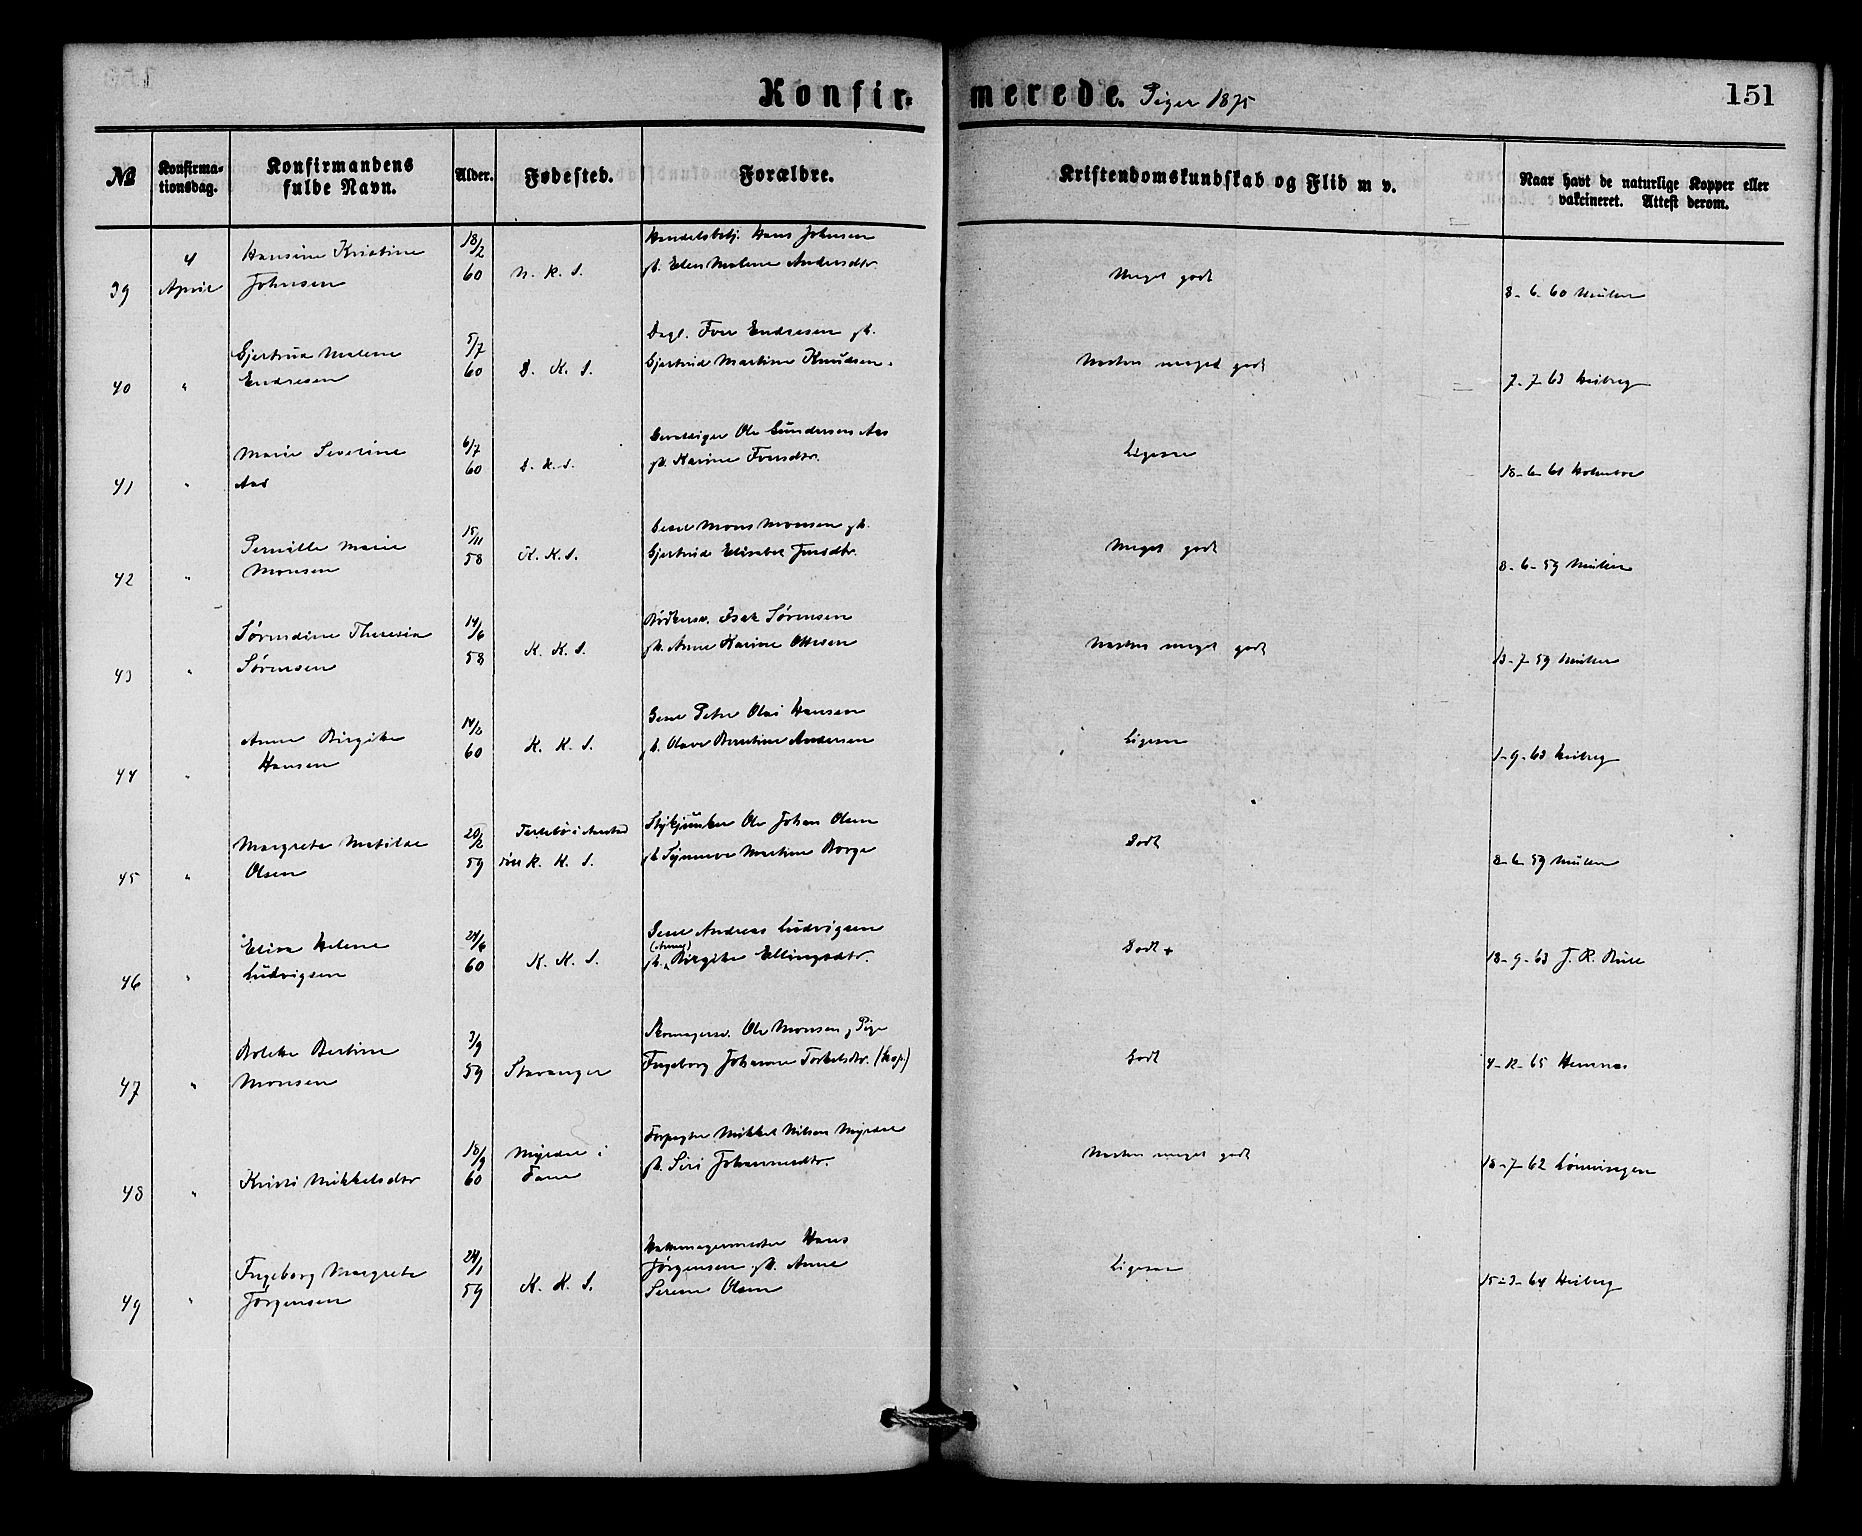 Konfir- merede. Piger 1875 151
№ Konfirmationsdag. Konfirmandens fulde Navn. Alder. Fødested. Forældre. Kristendomskundskab og Flid m v. Naar havt de naturlige Kopper eller vakcineret. Attest derom.
39 4 April Hansine Kristine Johnsen 18/2 60 N. K. S. Handelsbetj. Hans Johnsen gb. Elen Malene Andersdtr. Meget godt 8-6-60 Müller
40 " Gjertrud Malene Endresen 5/7 60 D. K. S. Dagl. Iver Endresen gb. Gjertrud Martine Knudsen. Næsten meget godt 7-7-63 Heiberg
41 " Marie Severine Aas 6/7 60 D. K. S. Ole Gundersen Aas gb. Karine Iversdtr. Ligesaa 18-6-61
42 " Pernille Marie Monsen 15/11 58 K. K. S. Mons Monsen gb. Gjertrud Elisabet Jensdtr. Meget godt 8-6-59 Müller
43 " Sørendine Theresia Sørensen 14/6 58 K. K. S. Bødkersv. Isak Sørensen gb. Anne Karine Ottesen Næsten meget godt 13-7-59 Müller
44 " Anne Birgitte Hansen 60 K. K. S. Peter Olai Hansen gb. Olave Berntine Andersen Ligesaa 1-9-63 Heiberg
45 " Margrete Matilde Olsen 20/2 59 K. K. S. Stykjunker Ole Johan Olsen gb. Synneve Martine Borge Godt 8-6-59 Müller
46 " Elisa Helene Ludvigsen 24/6 60 K. K. S. Andreas Ludvigsen gb. (Anne) Birgitte Ellingsdtr. Godt + 18-9-63 J. R. Bull
47 " Bolette Bertine Monsen 3/9 59 Stavanger Skomagersv. Ole Monsen, Pige Ingeborg Johanne Torkelsdtr. Godt 4-12-65
48 " Kristi Mikkelsdtr 18/9 60 Myrdal i Fane Forpagter Mikkel Nilsen Myrdal gb. Siri Johannesdtr. Næsten meget godt 18-7-62 Lønningen
49 " Ingeborg Margrete Jørgensen 24/1 59 K. K. S. Hattemagermester Hans Jørgensen gb. Anne Serene Olsen Ligesaa 15-3-64 Heiberg